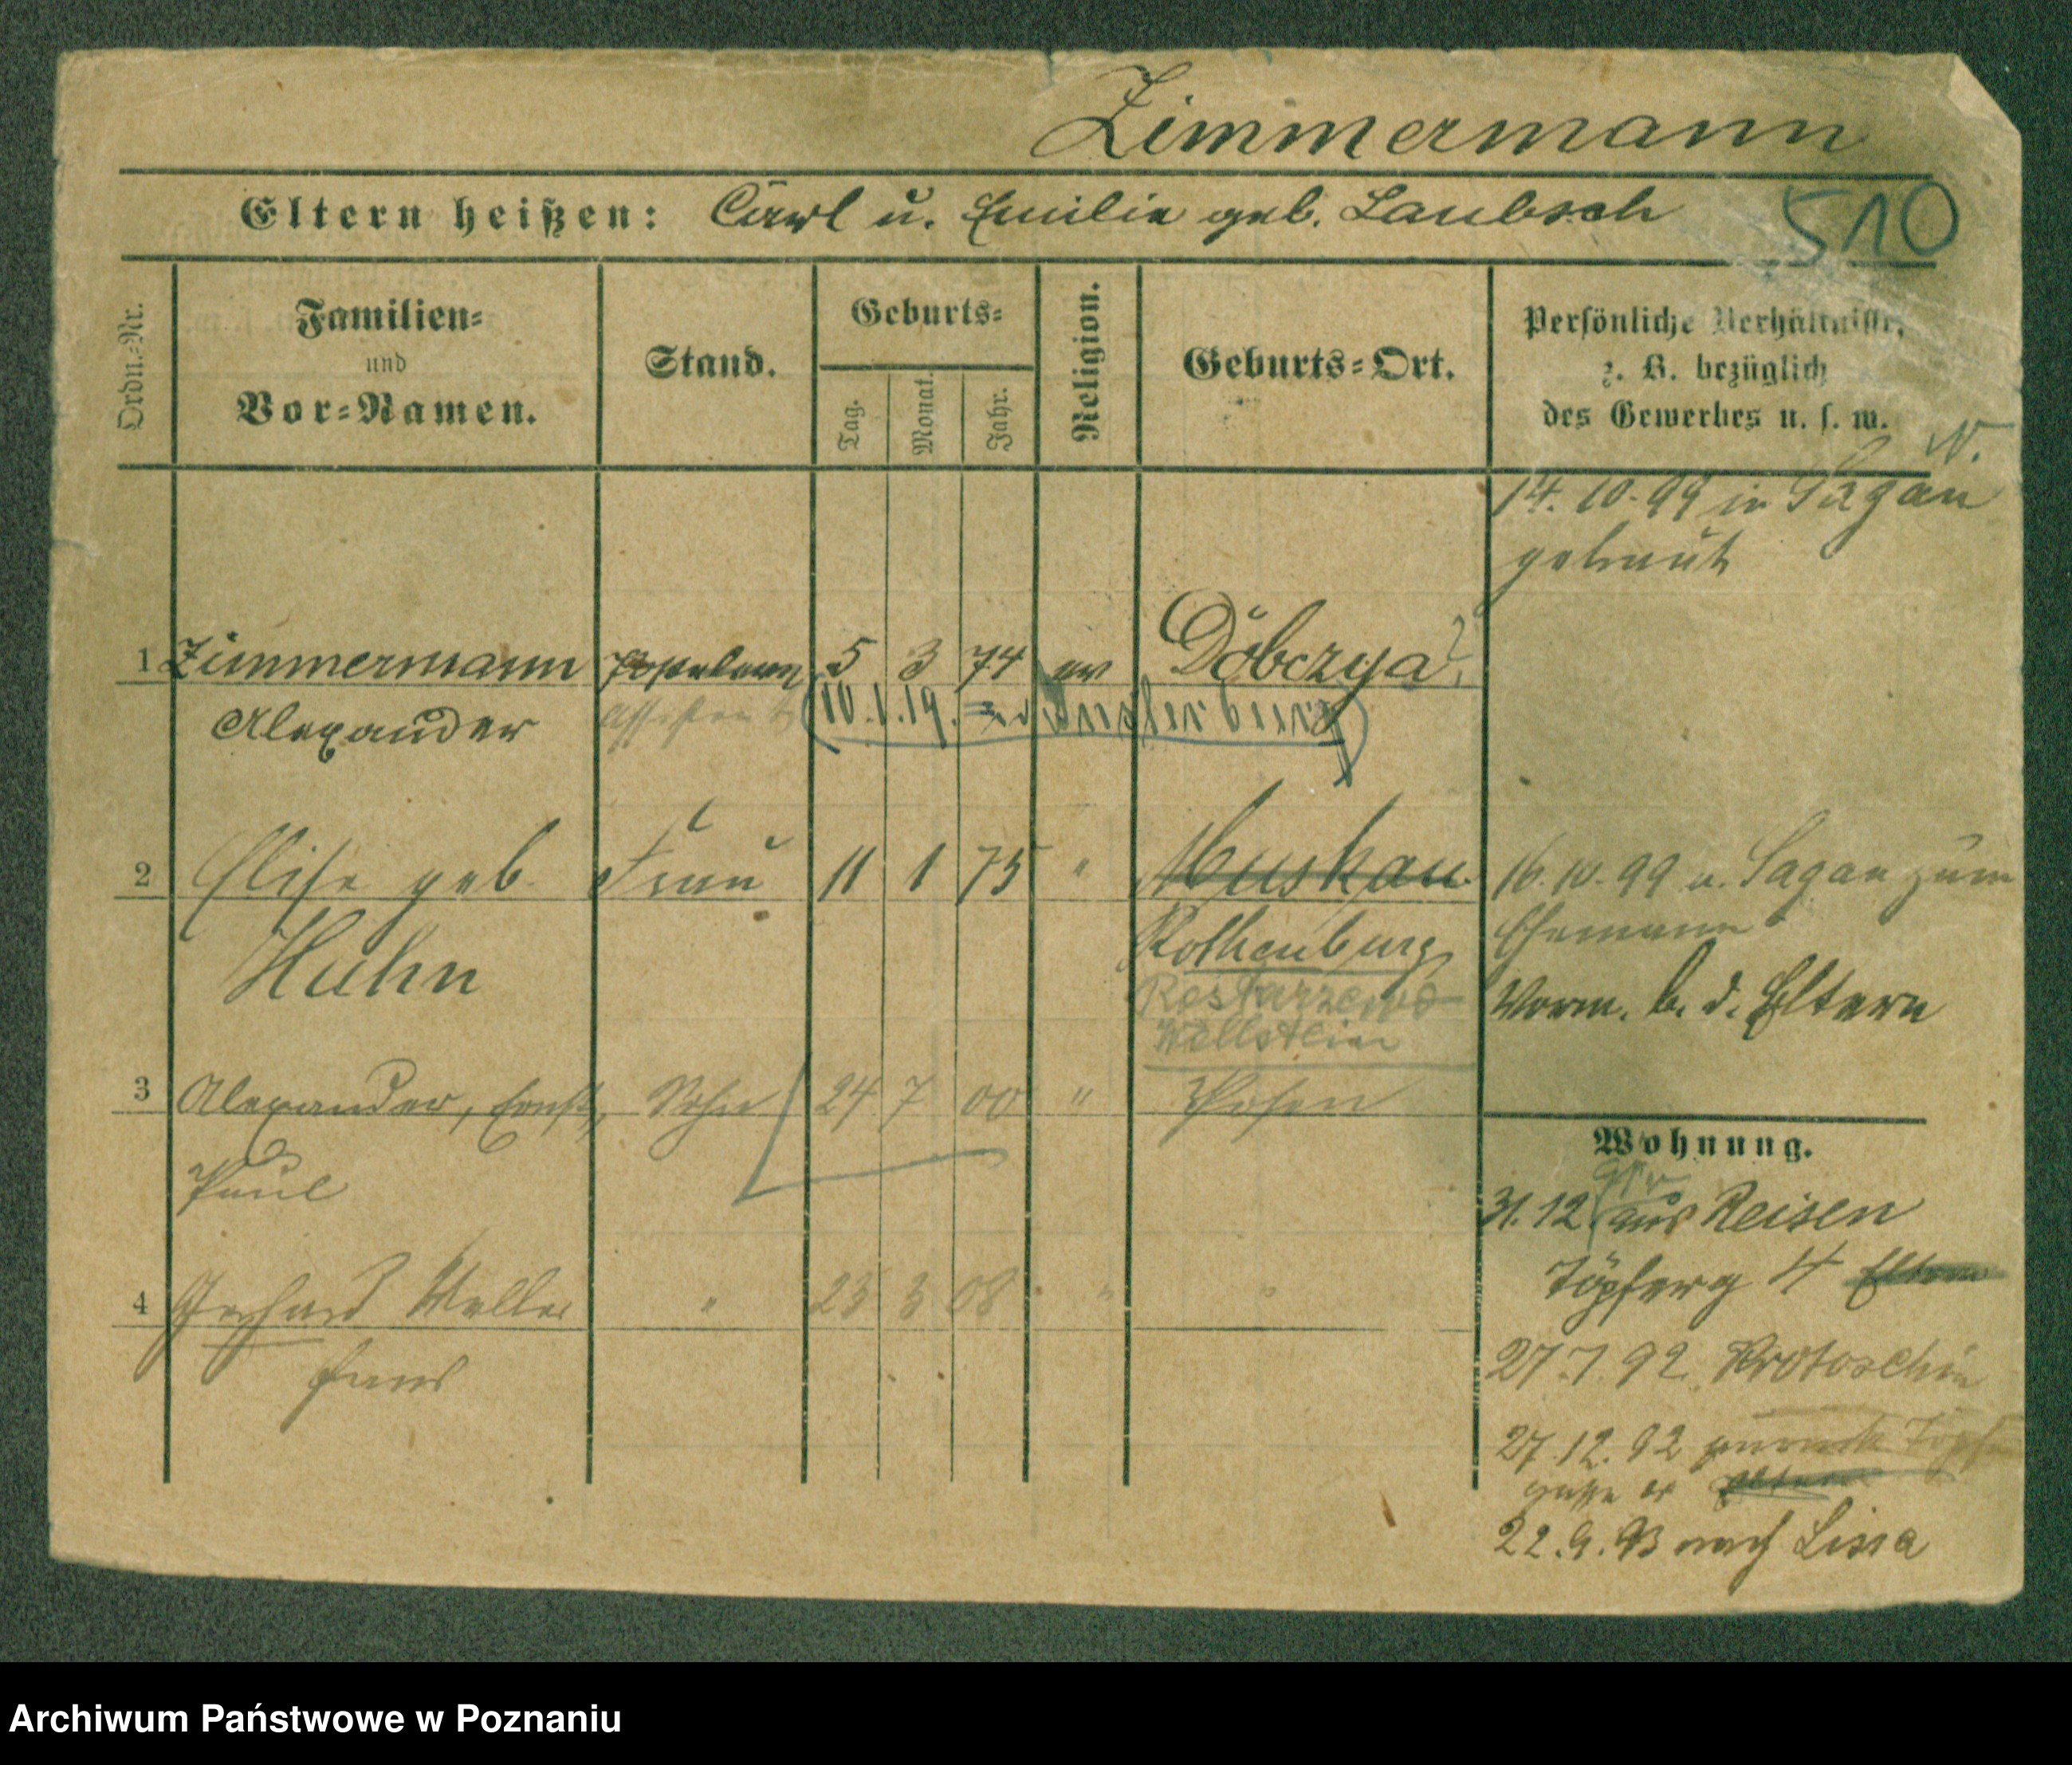 Zimmermann
Eltern heißen: Carl u. Emilie geb. Laubsch
510
Ordn.-Nr.
Familien-
und
Vor-Namen.
Stand.
Geburts-
Tag.
Monat.
Jahr.
Religion.
Geburts-Ort.
Persönliche Verhältnisse,
z. B. bezüglich
des Gewerbes u. s. w.
14. 10. 99 in Sagan
getraut
1 Zimmermann 5 3 74 ev
Alexander Assistent 10.1.19.
2 Elise geb. Frau 11 1 75 " Muskau
Huhn
Rothenburg
Rostarzewo
Wollstein
16. 10. 99 v. Sagan zum
Ehemann
Vorm. b. d. Eltern
3 Alexander, Ernst, Sohn 24 7 00 " Posen
Paul
4 Gerhard " 23 3 08 " "
Hans
Wohnung.
31. 12. aus Reisen
Töpferg 4 Eltern
27. 7. 92. Krotoschin
27. 12. 92 zurück Töpfer
gasse Eltern
22. 9. 93 nach Lissa
Archiwum Państwowe w Poznaniu